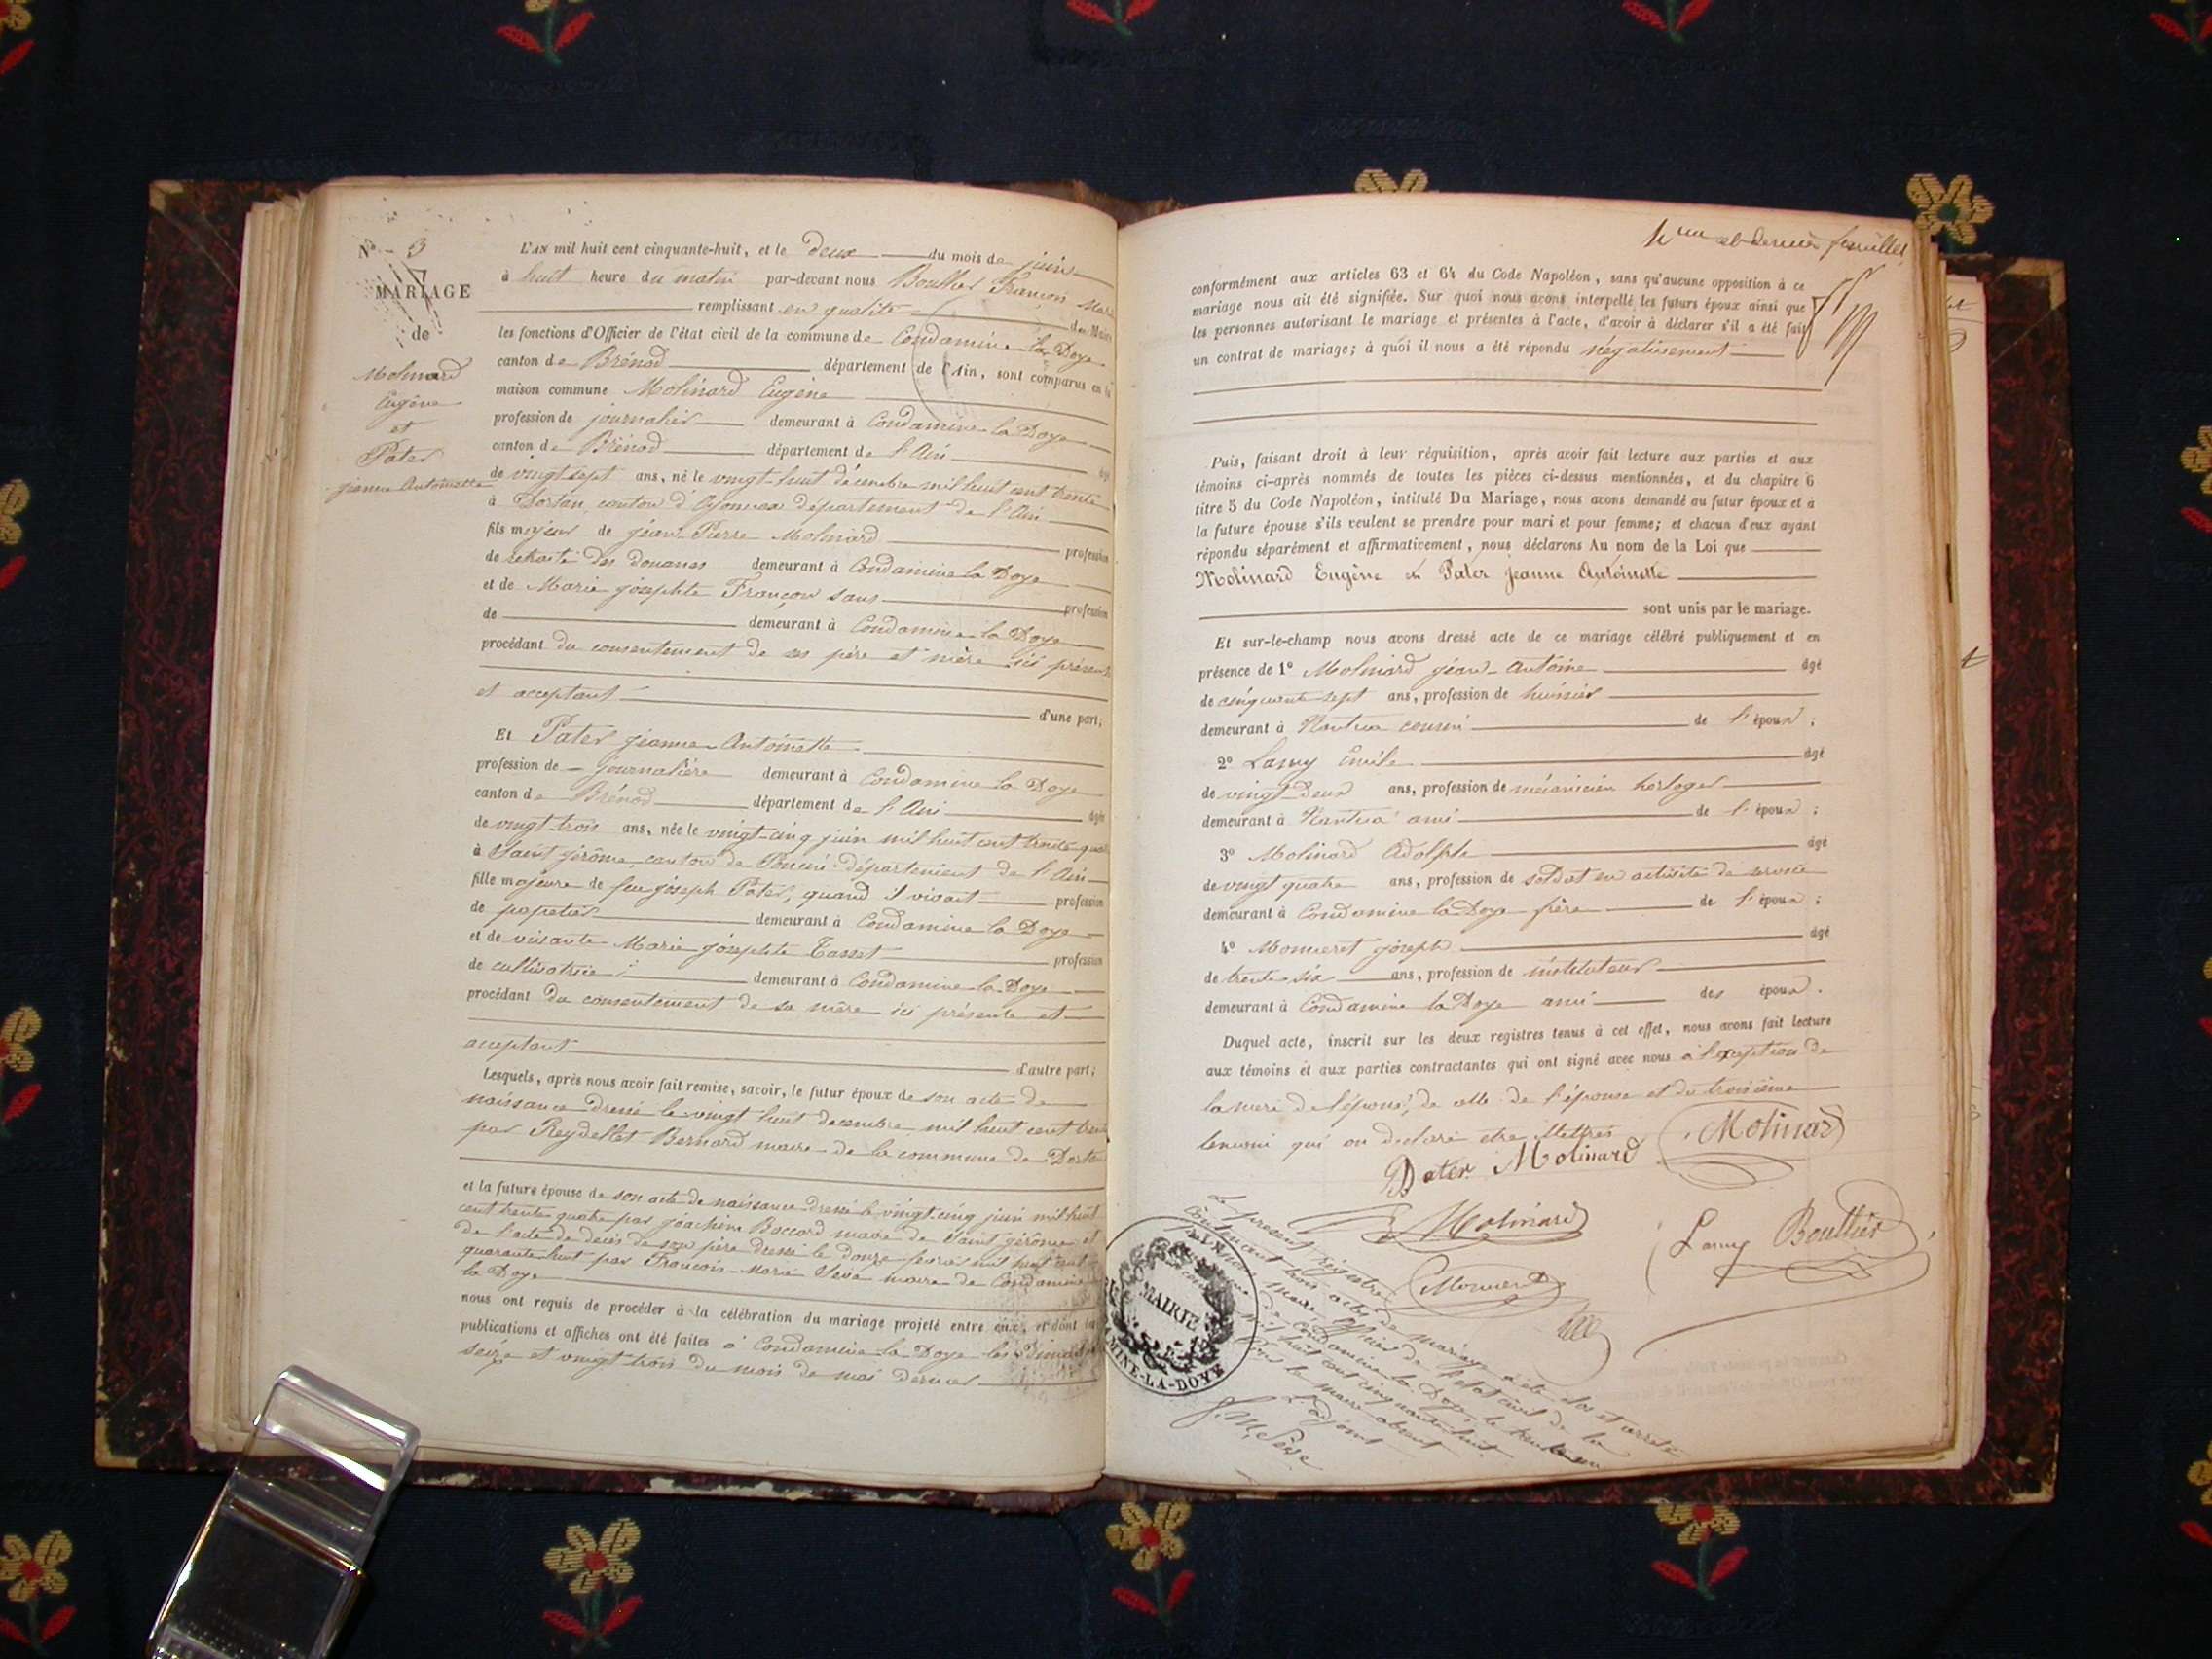 N° 3
MARIAGE
de
Molinard
Eugène
et
Pater
jeanne Antoinette
L'AN mil huit cent cinquante-huit, et le deux du mois de juin
à huit heure du matin par-devant nous Bouthier François
remplissant en qualité de Maire
les fonctions d'Officier de l'état civil de la commune de Condamine la Doye
canton de Brénod département de l'Ain, sont comparus en la
maison commune Molinard Eugène
profession de journalier demeurant à Condamine la Doye
canton de Brénod département de l'Ain
de vingt sept ans, né le vingt huit décembre mil huit cent trente
à Dortan canton d'Oyonnax département de l'Ain
fils majeur de jean Pierre Molinard profession
de retraité des douanes demeurant à Condamine la Doye
et de Marie josephte Françon sans profession
de demeurant à Condamine la Doye
procédant du consentement de ses père et mère ici présents
et acceptant d'une part;
Et Pater jeanne Antoinette
profession de journalière demeurant à Condamine la Doye
canton de Brénod département de l'Ain âgée
de vingt trois ans, née le vingt-cinq juin mil huit cent trente quat
à Saint jérôme canton de Poncin département de l'Ain
fille majeure de feu joseph Pater, quand il vivait profession
de papetier demeurant à Condamine la Doye
et de vivante Marie josephte Tasset profession
de cultivatrice demeurant à Condamine la Doye
procédant du consentement de sa mère ici présente et
acceptant d'autre part;
Lesquels, après nous avoir fait remise, savoir, le futur époux de son acte de
naissance dressé le vingt huit decembre mil huit cent trente
par Reydellet Bernard maire de la commune de Dortan
et la future épouse de son acte de naissance dressé le vingt-cinq juin mil huit
cent trente quatre par joachim Boccard maire de Saint jérôme et
de l'acte de décès de son père dressé le douze mil huit cent
quarante huit par François-Marie Sève maire de Condamine
la Doye
nous ont requis de procéder à la célébration du mariage projeté entre eux, et dont les
publications et affiches ont été faites à Condamine la Doye les Dimanches
seize et vingt trois du mois de mai dernier
et dernier feuillet
conformément aux articles 63 et 64 du Code Napoléon, sans qu'aucune opposition à ce
mariage nous ait été signifiée. Sur quoi nous avons interpellé les futurs époux ainsi que
les personnes autorisant le mariage et présentes à l'acte, d'avoir à déclarer s'il a été fait
un contrat de mariage; à quoi il nous a été répondu négativement
Puis, faisant droit à leur réquisition, après avoir fait lecture aux parties et aux
témoins ci-après nommés de toutes les pièces ci-dessus mentionnées, et du chapitre 6
titre 5 du Code Napoléon, intitulé Du Mariage, nous avons demandé au futur époux et à
la future épouse s'ils veulent se prendre pour mari et pour femme; et chacun d'eux ayant
répondu séparément et affirmativement, nous déclarons Au nom de la Loi que
Molinard Eugène et Pater jeanne Antoinette
sont unis par le mariage.
Et sur-le-champ nous avons dressé acte de ce mariage célébré publiquement et en
présence de 1° Molinard jean-Antoine âgé
de cinquante sept ans, profession de huissier
demeurant à Nantua cousin de l'époux;
2° Lamy Emile âgé
de vingt-deux ans, profession de mécanicien horloger
demeurant à Nantua ami de l'époux;
3° Molinard Adolphe âgé
de vingt quatre ans, profession de soldat en activité de service
demeurant à Condamine la Doye frère de l'époux;
4° Monneret joseph âgé
de trente six ans, profession de instituteur
demeurant à Condamine la Doye ami des époux.
Duquel acte, inscrit sur les deux registres tenus à cet effet, nous avons fait lecture
aux témoins et aux parties contractantes qui ont signé avec nous à l'exception de
la mère de l'époux, de celle de l'épouse et du troisième
temoin qui on declaré etre illettrés
Molinard
Pater Molinard
Molinard
Lamy Bouthier
Monneret
Le present registre
contenant trois actes de mariage a été clos et arrété
par nous Maire officier de l'etat civil de la
commune de Condamine la Doye le trente un
mil huit cent cinquante huit
Pour le maire absent
L'adjoint
f. M. Sève
MAIRIE
MINE-LA-DOYE
AIN